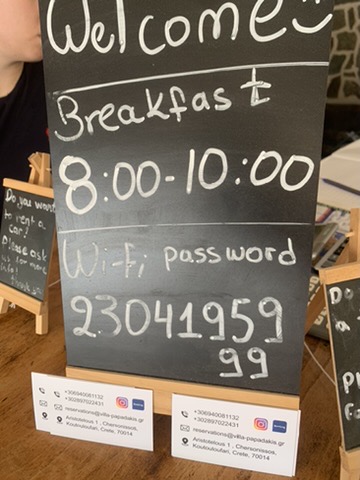 Welcome
Breakfast
8:00-10:00
Wifi password
23041959
99
Do you want
to rent a
car?
Please ask
for more
info!
+306940081132
+302897022431
reservations@villa-papadakis.gr
Aristotelous 1 , Chersonissos,
Koutouloufari, Crete, 70014
+306940081132
+302897022431
reservations@villa-papadakis.gr
Aristotelous 1 , Chersonissos,
Koutouloufari, Crete, 70014